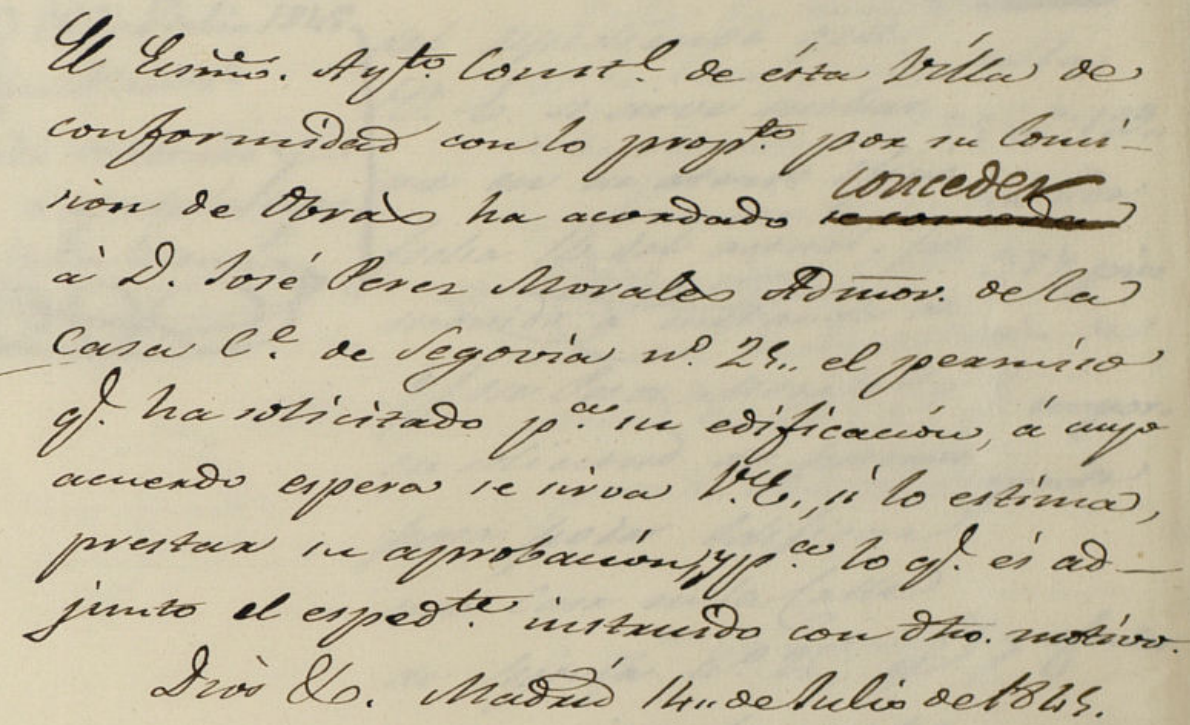 El Escmo. Ayto. Constl. de ésta Villa de
conformidad con lo propto. por su Comi-
sion de Obras ha acordado se conceda conceder
à D. José Perez Morales Admor. de la
Casa Ce. de Segovia nº 25,, el permiso
q. ha solicitado pa. su edificación, á cuyo
acuerdo espera se sirva V.E., si lo estima,
prestar su aprobación, y pa. lo q. es ad-
junto el espedte. instruido con dho. motivo.
Dios &. Madrid 14,, de Julio de 1845.